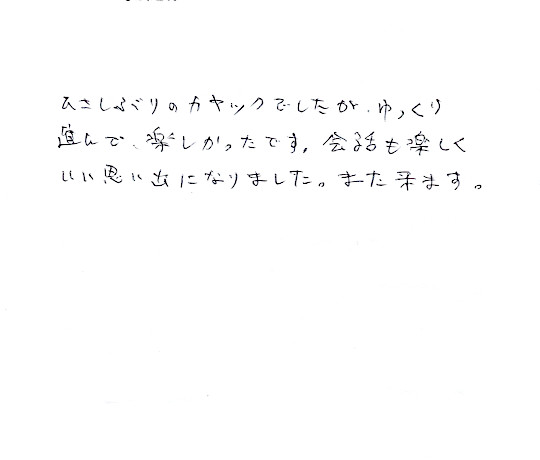 ひさしぶりのカヤックでしたが、ゆっくり
進んで、楽しかったです。会話も楽しく
いい思い出になりました。また来ます。